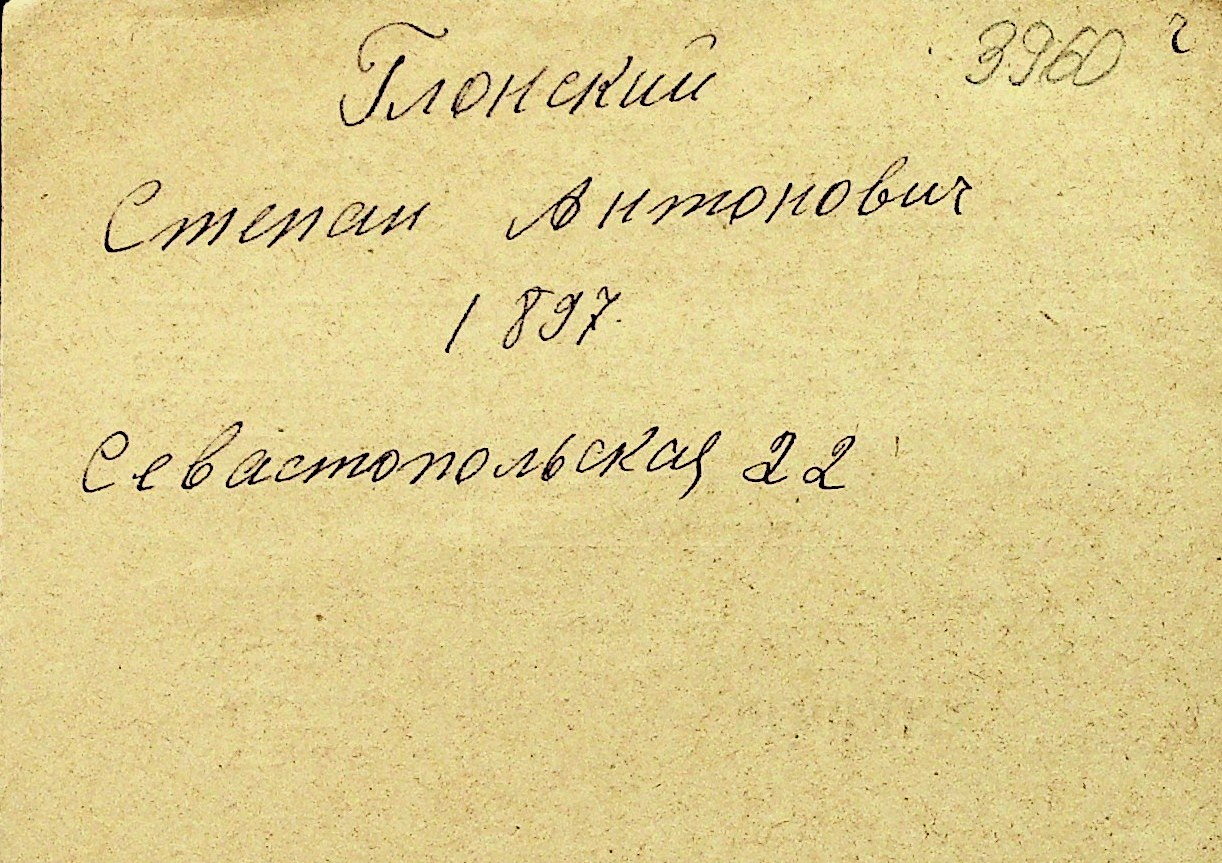 3960 ч
Глонский
Степан Антонович
1897
Севастопольская 22